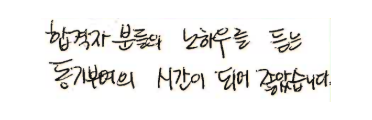 합격자 분들의 노하우를 듣는
동기부여의 시간이 되어 좋았습니다.